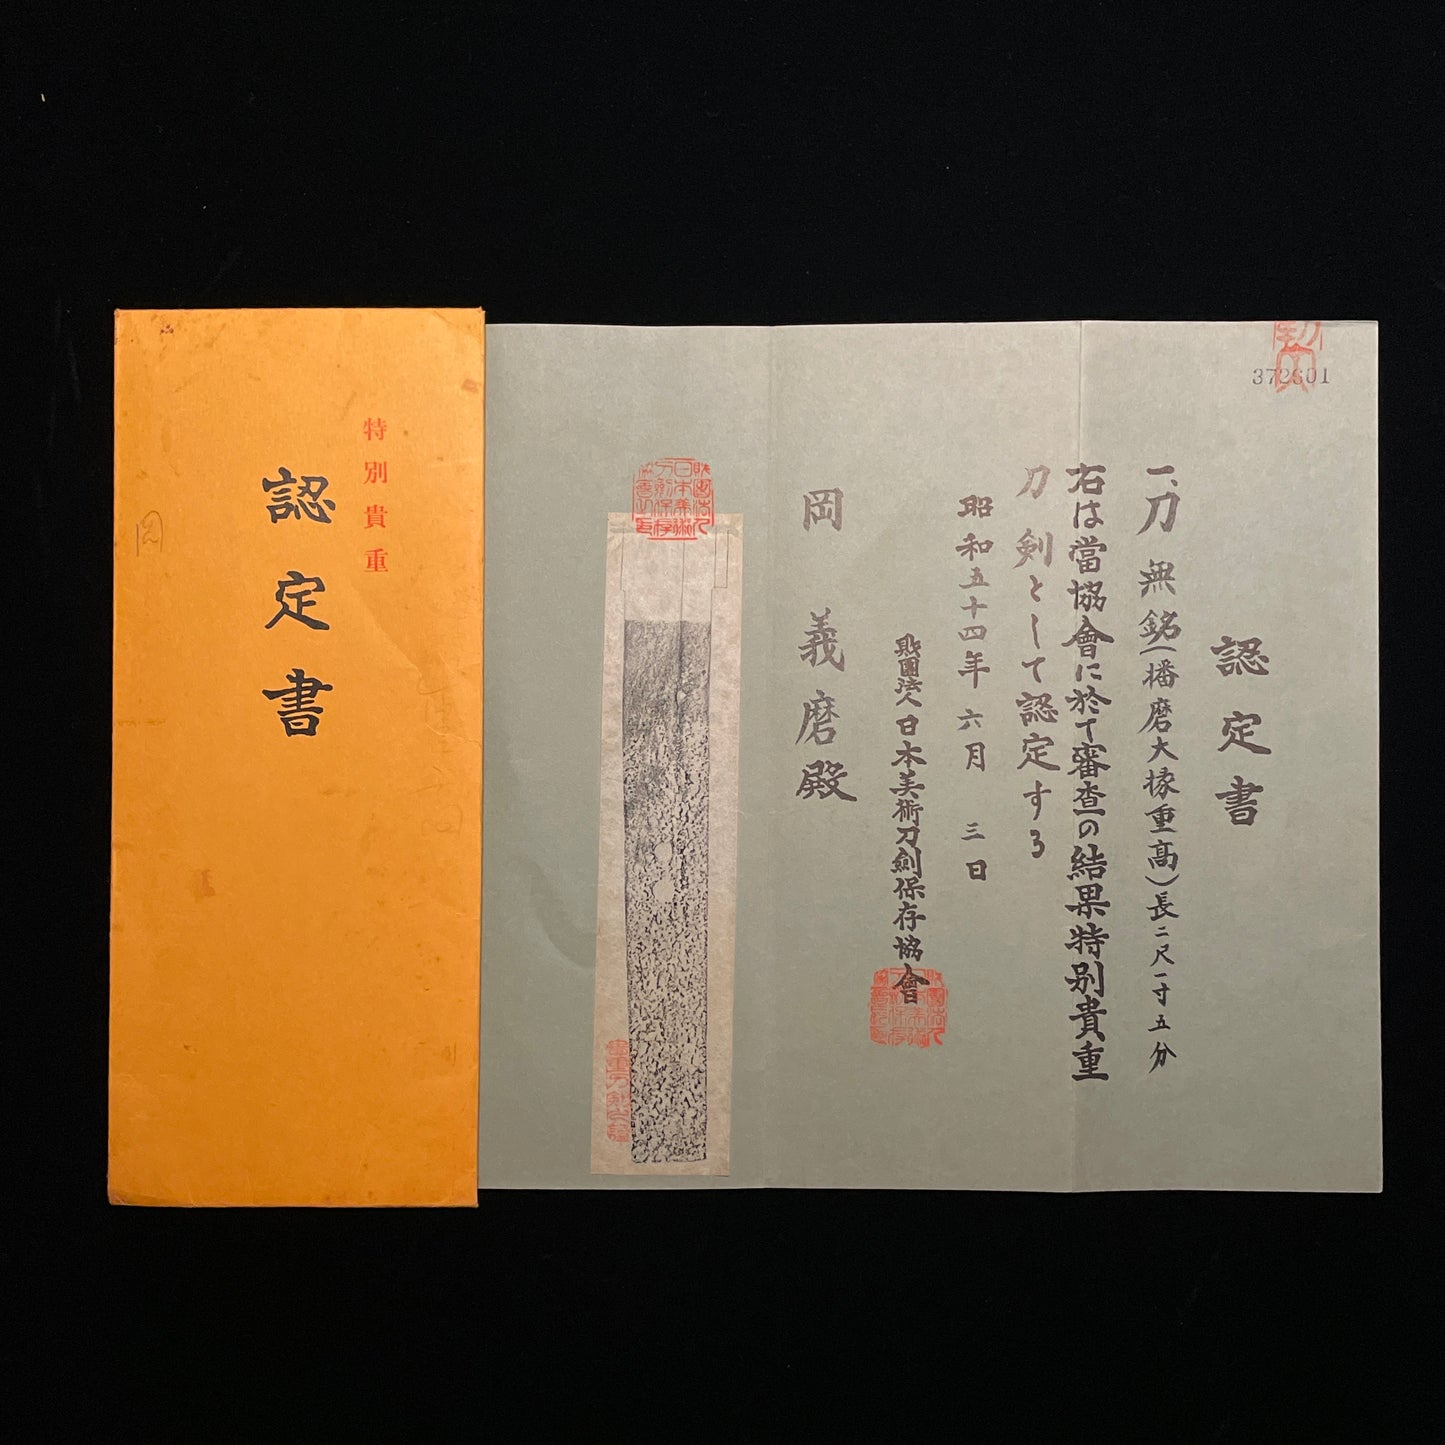 特別貴重
認定書
372601
認定書
一、刀 無銘(播磨大掾重高)長二尺一寸五分
右は當協會に於て審査の結果特別貴重
刀剣として認定する
昭和五十四年六月三日
財團法人日本美術刀剣保存協會
岡義磨殿